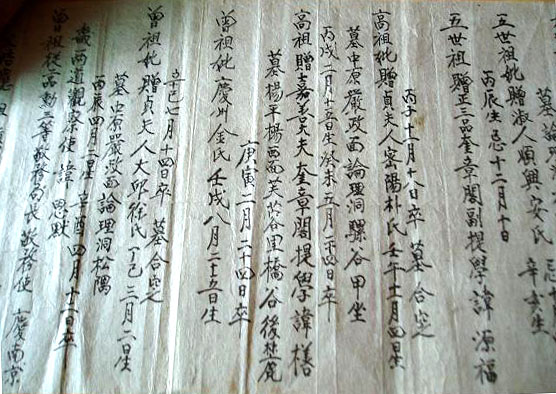 五世祖妣贈淑人順興安氏 辛亥生
丙辰生 忌十二月十日
五世祖贈正三品奎章閣副提學諱 源福
丙子十一月十八日卒 墓合窆
高祖妣贈貞夫人密陽朴氏 壬午十二月四日生
墓中原嚴政面論理洞驛谷甲坐
丙戌二月十五日生 癸未五月二十四日卒
高祖贈嘉善大夫奎章閣提學諱 橏
墓楊平楊西面芙蓉谷里橋谷後麓
庚寅二月二十四日卒
曾祖妣慶州金氏 壬戌八月二十五日生
辛巳七月十四日卒 墓合窆
曾祖妣贈貞夫人大邱徐氏 丁巳三月二日生
墓中原嚴政面論理洞松隅
丙辰四月一日生 辛酉四月十一日卒
兩道觀察使 諱 思默
曾祖從二品勳三等敬務局長敬務使 慶南京